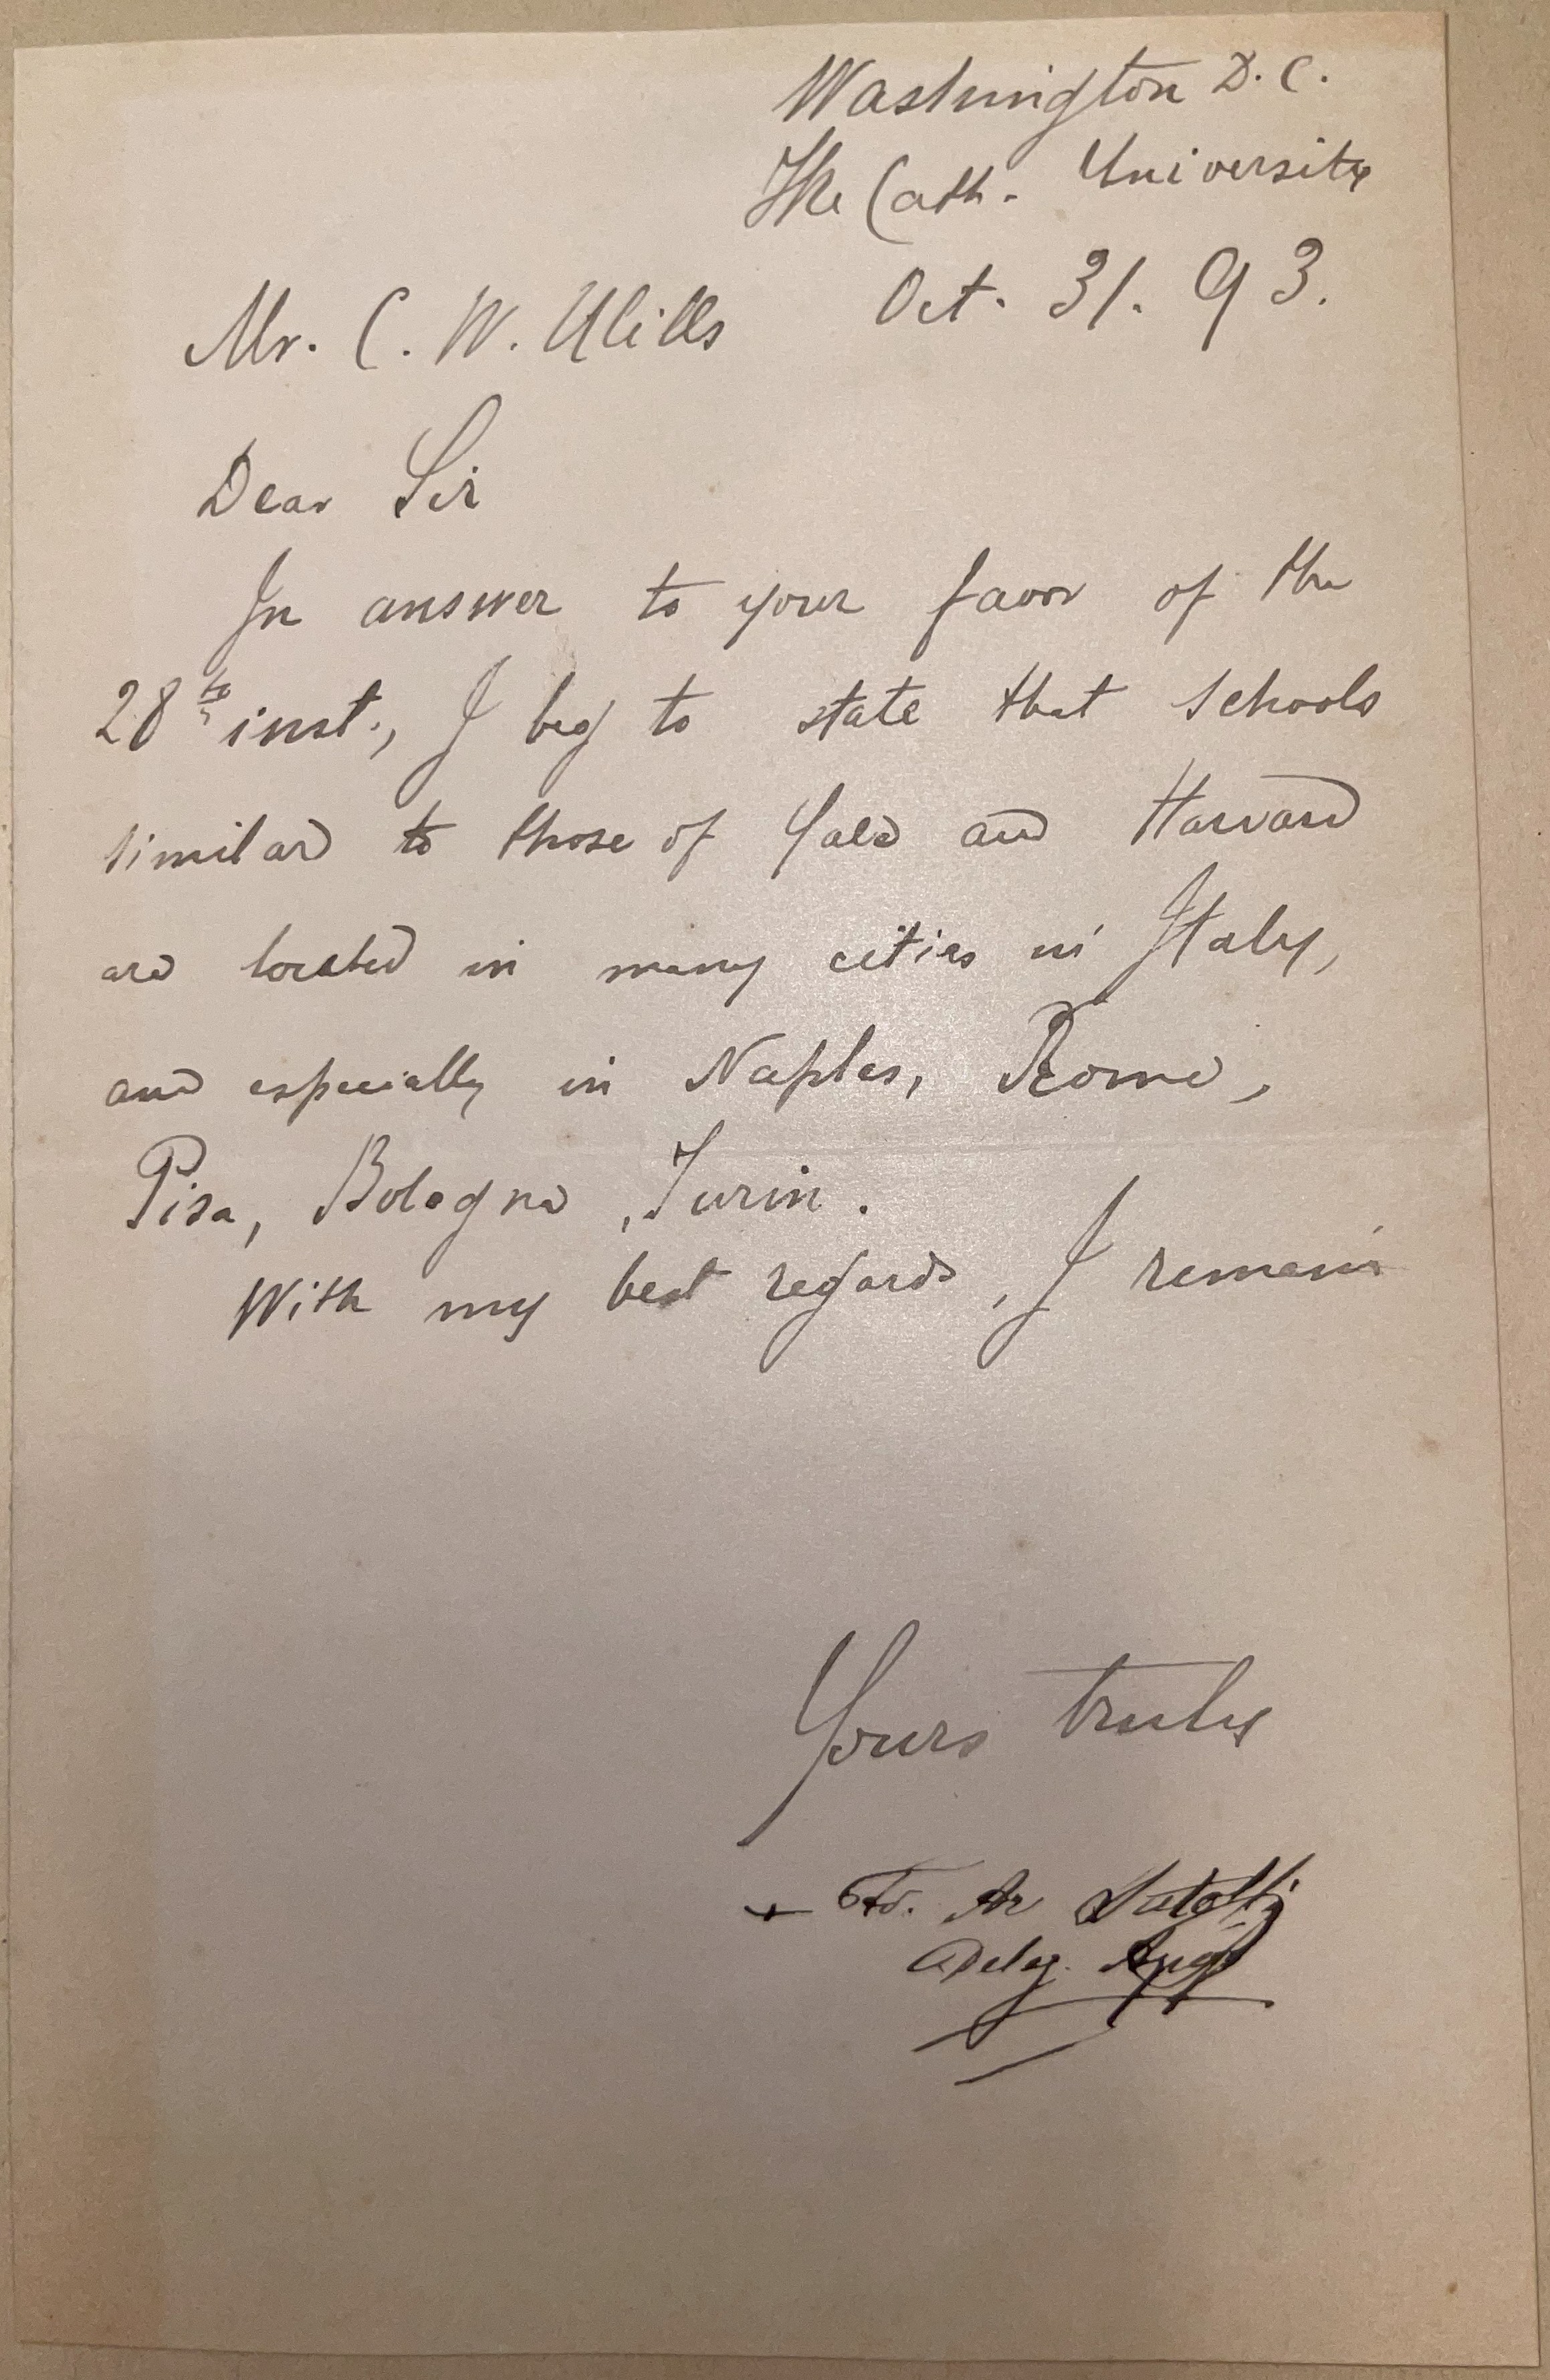 Washington D. C.
The Cath. University
Oct. 31. 93.
Mr. C. W. Mills
Dear Sir
In answer to your favor of the
28th inst., I beg to state that schools
similar to those of Yale and Harvard
are located in many cities in Italy,
and especially in Naples, Rome,
Pisa, Bologna, Turin.
With my best regards, I remain
Yours truly
+ Fr. Ar Satolli
Deleg. Apos